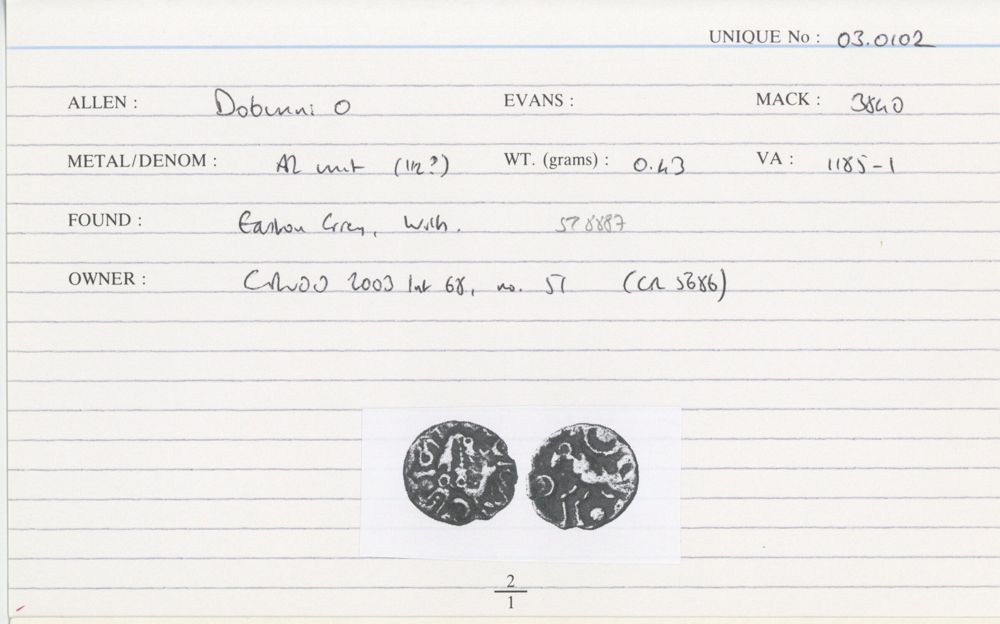 UNIQUE No : 03.0102
ALLEN : Dobunni O EVANS : MACK : 384O
METAL/DENOM : AR unit (1/2?) WT. (grams) : 0.43 VA : 1185-1
FOUND : Easton Grey, Wilts. ST 8887
OWNER : 2003 68, no. 51 (CR 5686)
2
1